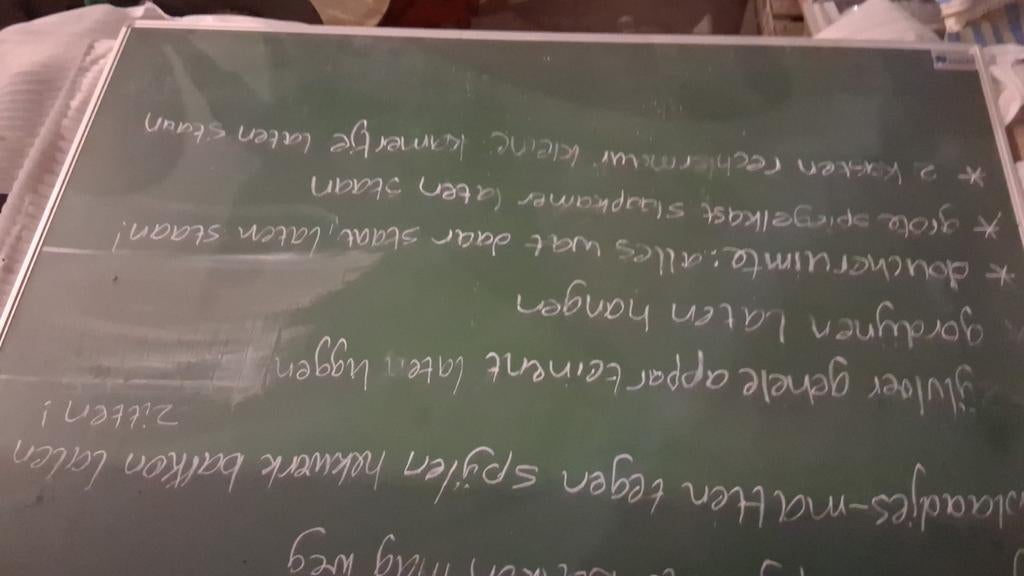 mag weg
blaadjes-matten tegen spijlen hekwerk balkon laten
zitten!
gehele appartement laten liggen
gordijnen laten hangen
* doucheruimte: alles wat daar staat, laten staan!
* grote spiegelkast slaapkamer laten staan
* 2 kasten rechtermuur kleine kamertje laten staan